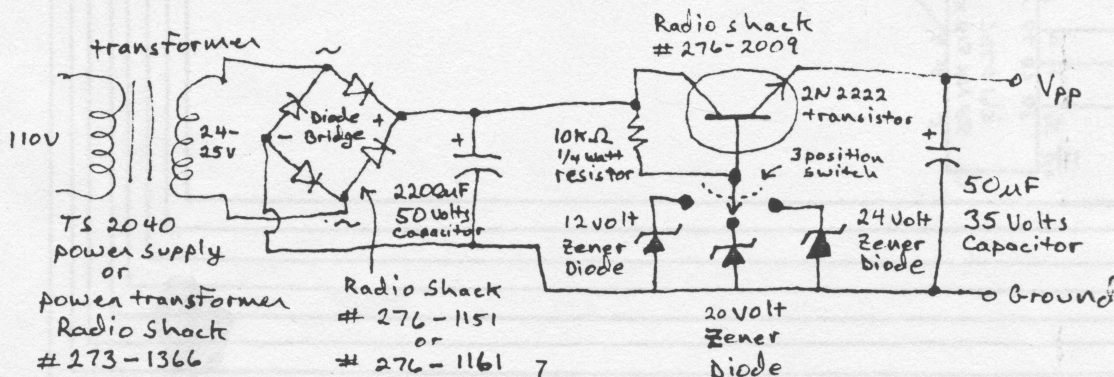 transformer
110V
24-
25V
TS 2040
power supply
or
power transformer
Radio Shack
# 273-1366
~
Diode
Bridge
-
+
~
Radio Shack
# 276-1151
or
# 276-1161
+
2200µF
50 volts
Capacitor
10KΩ
1/4 watt
resistor
Radio shack
# 276-2009
2N2222
transistor
3 position
switch
12 volt
Zener
Diode
20 volt
Zener
Diode
24 Volt
Zener
Diode
+
50µF
35 Volts
Capacitor
Vpp
Ground
7